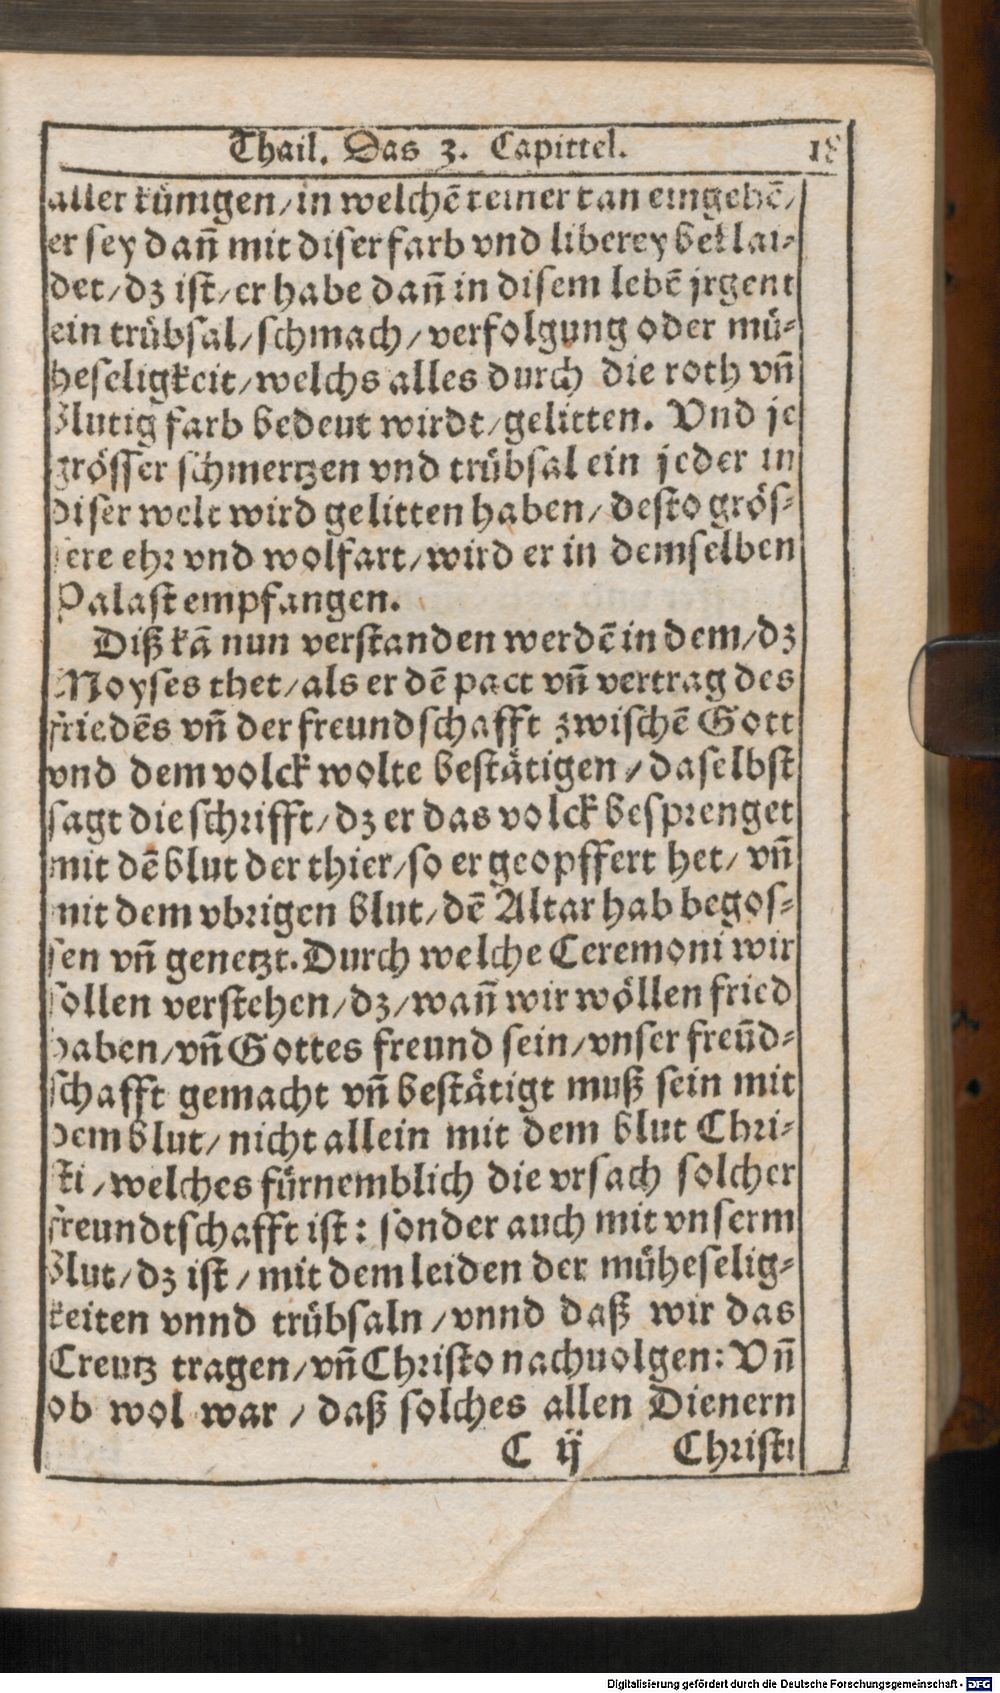 Thail. Das 3. Capittel. 18
aller künigen/ in welchē keiner kan eingehē/
er sey dañ mit diser farb vnd liberey beklai-
det/ dz ist/ er habe dañ in disem lebē jrgent
ein trübsal/ schmach/ verfolgung oder mü-
heseligkeit/ welchs alles durch die roth vñ
blutig farb bedeut wirdt/ gelitten. Vnd je
grösser schmertzen vnd trübsal ein jeder in
diser welt wird gelitten haben/ desto grös-
sere ehr vnd wolfart/ wird er in demselben
Palast empfangen.
Diß kā nun verstanden werdē in dem/ dz
Moyses thet/ als er dē pact vñ vertrag des
friedēs vñ der freundschafft zwischē Gott
vnd dem volck wolte bestätigen/ daselbst
sagt die schrifft/ dz er das volck besprenget
mit dē blut der thier/ so er geopffert het/ vñ
mit dem vbrigen blut/ dē Altar hab begos-
sen vñ genetzt. Durch welche Ceremoni wir
sollen verstehen/ dz/ wañ wir wöllen fried
haben/ vñ Gottes freund sein/ vnser freūd-
schafft gemacht vñ bestätigt muß sein mit
dem blut/ nicht allein mit dem blut Chri-
sti/ welches fürnemblich die vrsach solcher
freundtschafft ist: sonder auch mit vnserm
Blut/ dz ist/ mit dem leiden der müheselig-
keiten vnnd trübsaln/ vnnd daß wir das
Creutz tragen/ vñ Christo nachuolgen: Vñ
ob wol war/ daß solches allen Dienern
C ij Christi
Digitalisierung gefördert durch die Deutsche Forschungsgemeinschaft - DFG